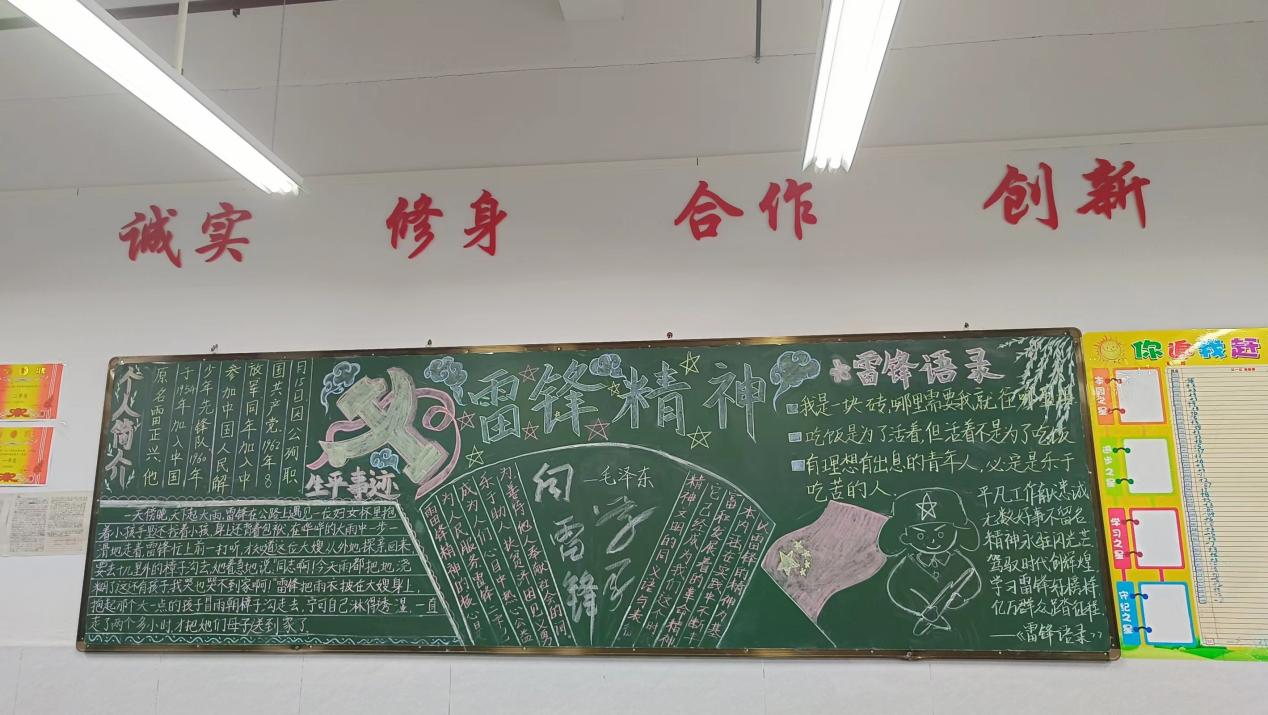 诚实 修身 合作 创新
个人简介
原名雷正兴 他
于1954年加入中国
少年先锋队1960年
参加中国人民解
放军同年加入中
国共产党 1962年8
月15日因公殉职
生平事迹
一天傍晚,天下起大雨,雷锋在公路上遇见一位妇女怀里抱
着小孩手里还拉着小孩,身上还背着包袱,在哗哗的大雨中一步一
滑地走着,雷锋忙上前一打听,才知道这位大嫂从外地探亲回来
要去十几里外的樟子沟去,她着急地说,"同志啊!今天雨都把地浇
糊了,这还有孩子,我哭也哭不到家啊!"雷锋把雨衣披在大嫂身上,
抱起那个大一点的孩子冒雨朝樟子沟走去,宁可自己淋得透湿,一直
走了两个多小时才把他们母子送到家了
雷锋精神
向雷锋
学习
—毛泽东
雷锋精神的核心是
为人民服务,雷锋二字
成为人们心目中热心公益
乐于助人 扶贫济困 见义勇
为善待他人奉献社会的同
以雷锋的精神为基
富和发展着的
雷锋语录
我是一块砖,哪里需要我就往哪
吃饭是为了活着,但活着不是为了吃饭
有理想有出息的青年人,必定是乐于
吃苦的人.
平凡工作献忠诚
无数好事不留名
精神永驻闪光芒
驾驭时代创辉煌
学习雷锋好榜样
亿万群众踏征程.
——《雷锋语录》
你追我赶
本周之星
进步之星
学习之星
守纪之星